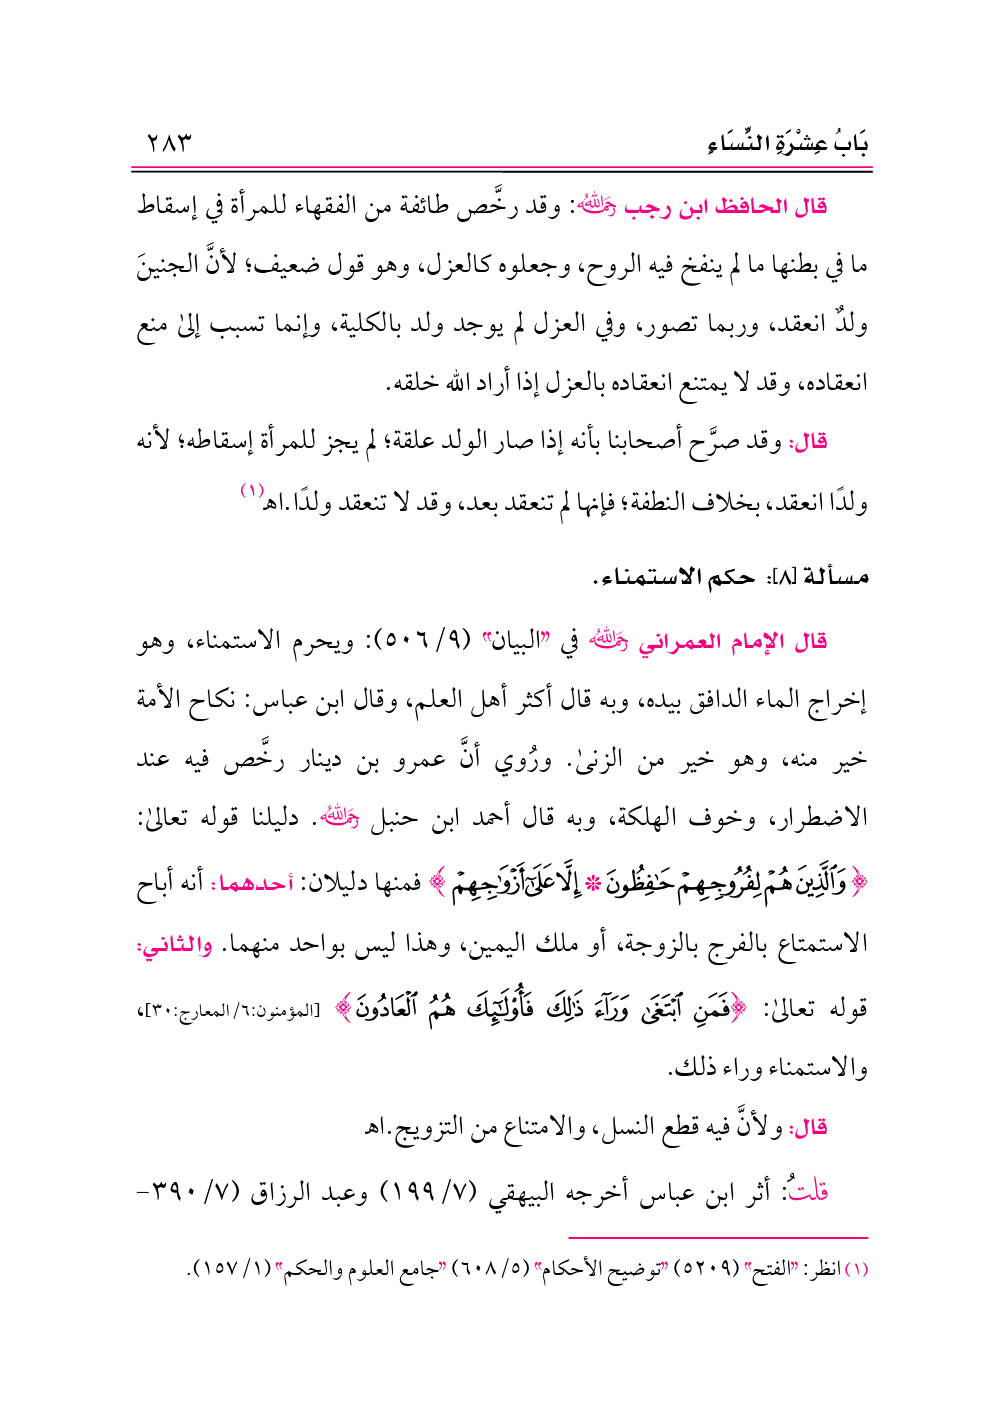 بَابُ عِشْرَةِ النِّسَاءِ ٢٨٣
قال الحافظ ابن رجب رحمه الله: وقد رخَّص طائفة من الفقهاء للمرأة في إسقاط
ما في بطنها ما لم ينفخ فيه الروح، وجعلوه كالعزل، وهو قول ضعيف؛ لأنَّ الجنينَ
ولدٌ انعقد، وربما تصور، وفي العزل لم يوجد ولد بالكلية، وإنما تسبب إلىٰ منع
انعقاده، وقد لا يمتنع انعقاده بالعزل إذا أراد الله خلقه.
قال: وقد صرَّح أصحابنا بأنه إذا صار الولد علقة؛ لم يجز للمرأة إسقاطه؛ لأنه
ولدًا انعقد، بخلاف النطفة؛ فإنها لم تنعقد بعد، وقد لا تنعقد ولدًا.اهـ(١)
مسألة [٨]: حكم الاستمناء.
قال الإمام العمراني رحمه الله في "البيان" (٩/ ٥٠٦): ويحرم الاستمناء، وهو
إخراج الماء الدافق بيده، وبه قال أكثر أهل العلم، وقال ابن عباس: نكاح الأمة
خير منه، وهو خير من الزنىٰ. ورُوي أنَّ عمرو بن دينار رخَّص فيه عند
الاضطرار، وخوف الهلكة، وبه قال أحمد ابن حنبل رحمه الله. دليلنا قوله تعالىٰ:
﴿وَٱلَّذِينَ هُمْ لِفُرُوجِهِمْ حَٰفِظُونَ * إِلَّا عَلَىٰٓ أَزْوَٰجِهِمْ﴾ فمنها دليلان: أحدهما: أنه أباح
الاستمتاع بالفرج بالزوجة، أو ملك اليمين، وهذا ليس بواحد منهما. والثاني:
قوله تعالىٰ: ﴿فَمَنِ ٱبْتَغَىٰ وَرَآءَ ذَٰلِكَ فَأُوْلَٰٓئِكَ هُمُ ٱلْعَادُونَ﴾ [المؤمنون:٦/ المعارج:٣٠]،
والاستمناء وراء ذلك.
قال: ولأنَّ فيه قطع النسل، والامتناع من التزويج.اهـ
قلتُ: أثر ابن عباس أخرجه البيهقي (٧/ ١٩٩) وعبد الرزاق (٧/ ٣٩٠-
(١) انظر: "الفتح" (٥٢٠٩) "توضيح الأحكام" (٥/ ٦٠٨) "جامع العلوم والحكم" (١/ ١٥٧).